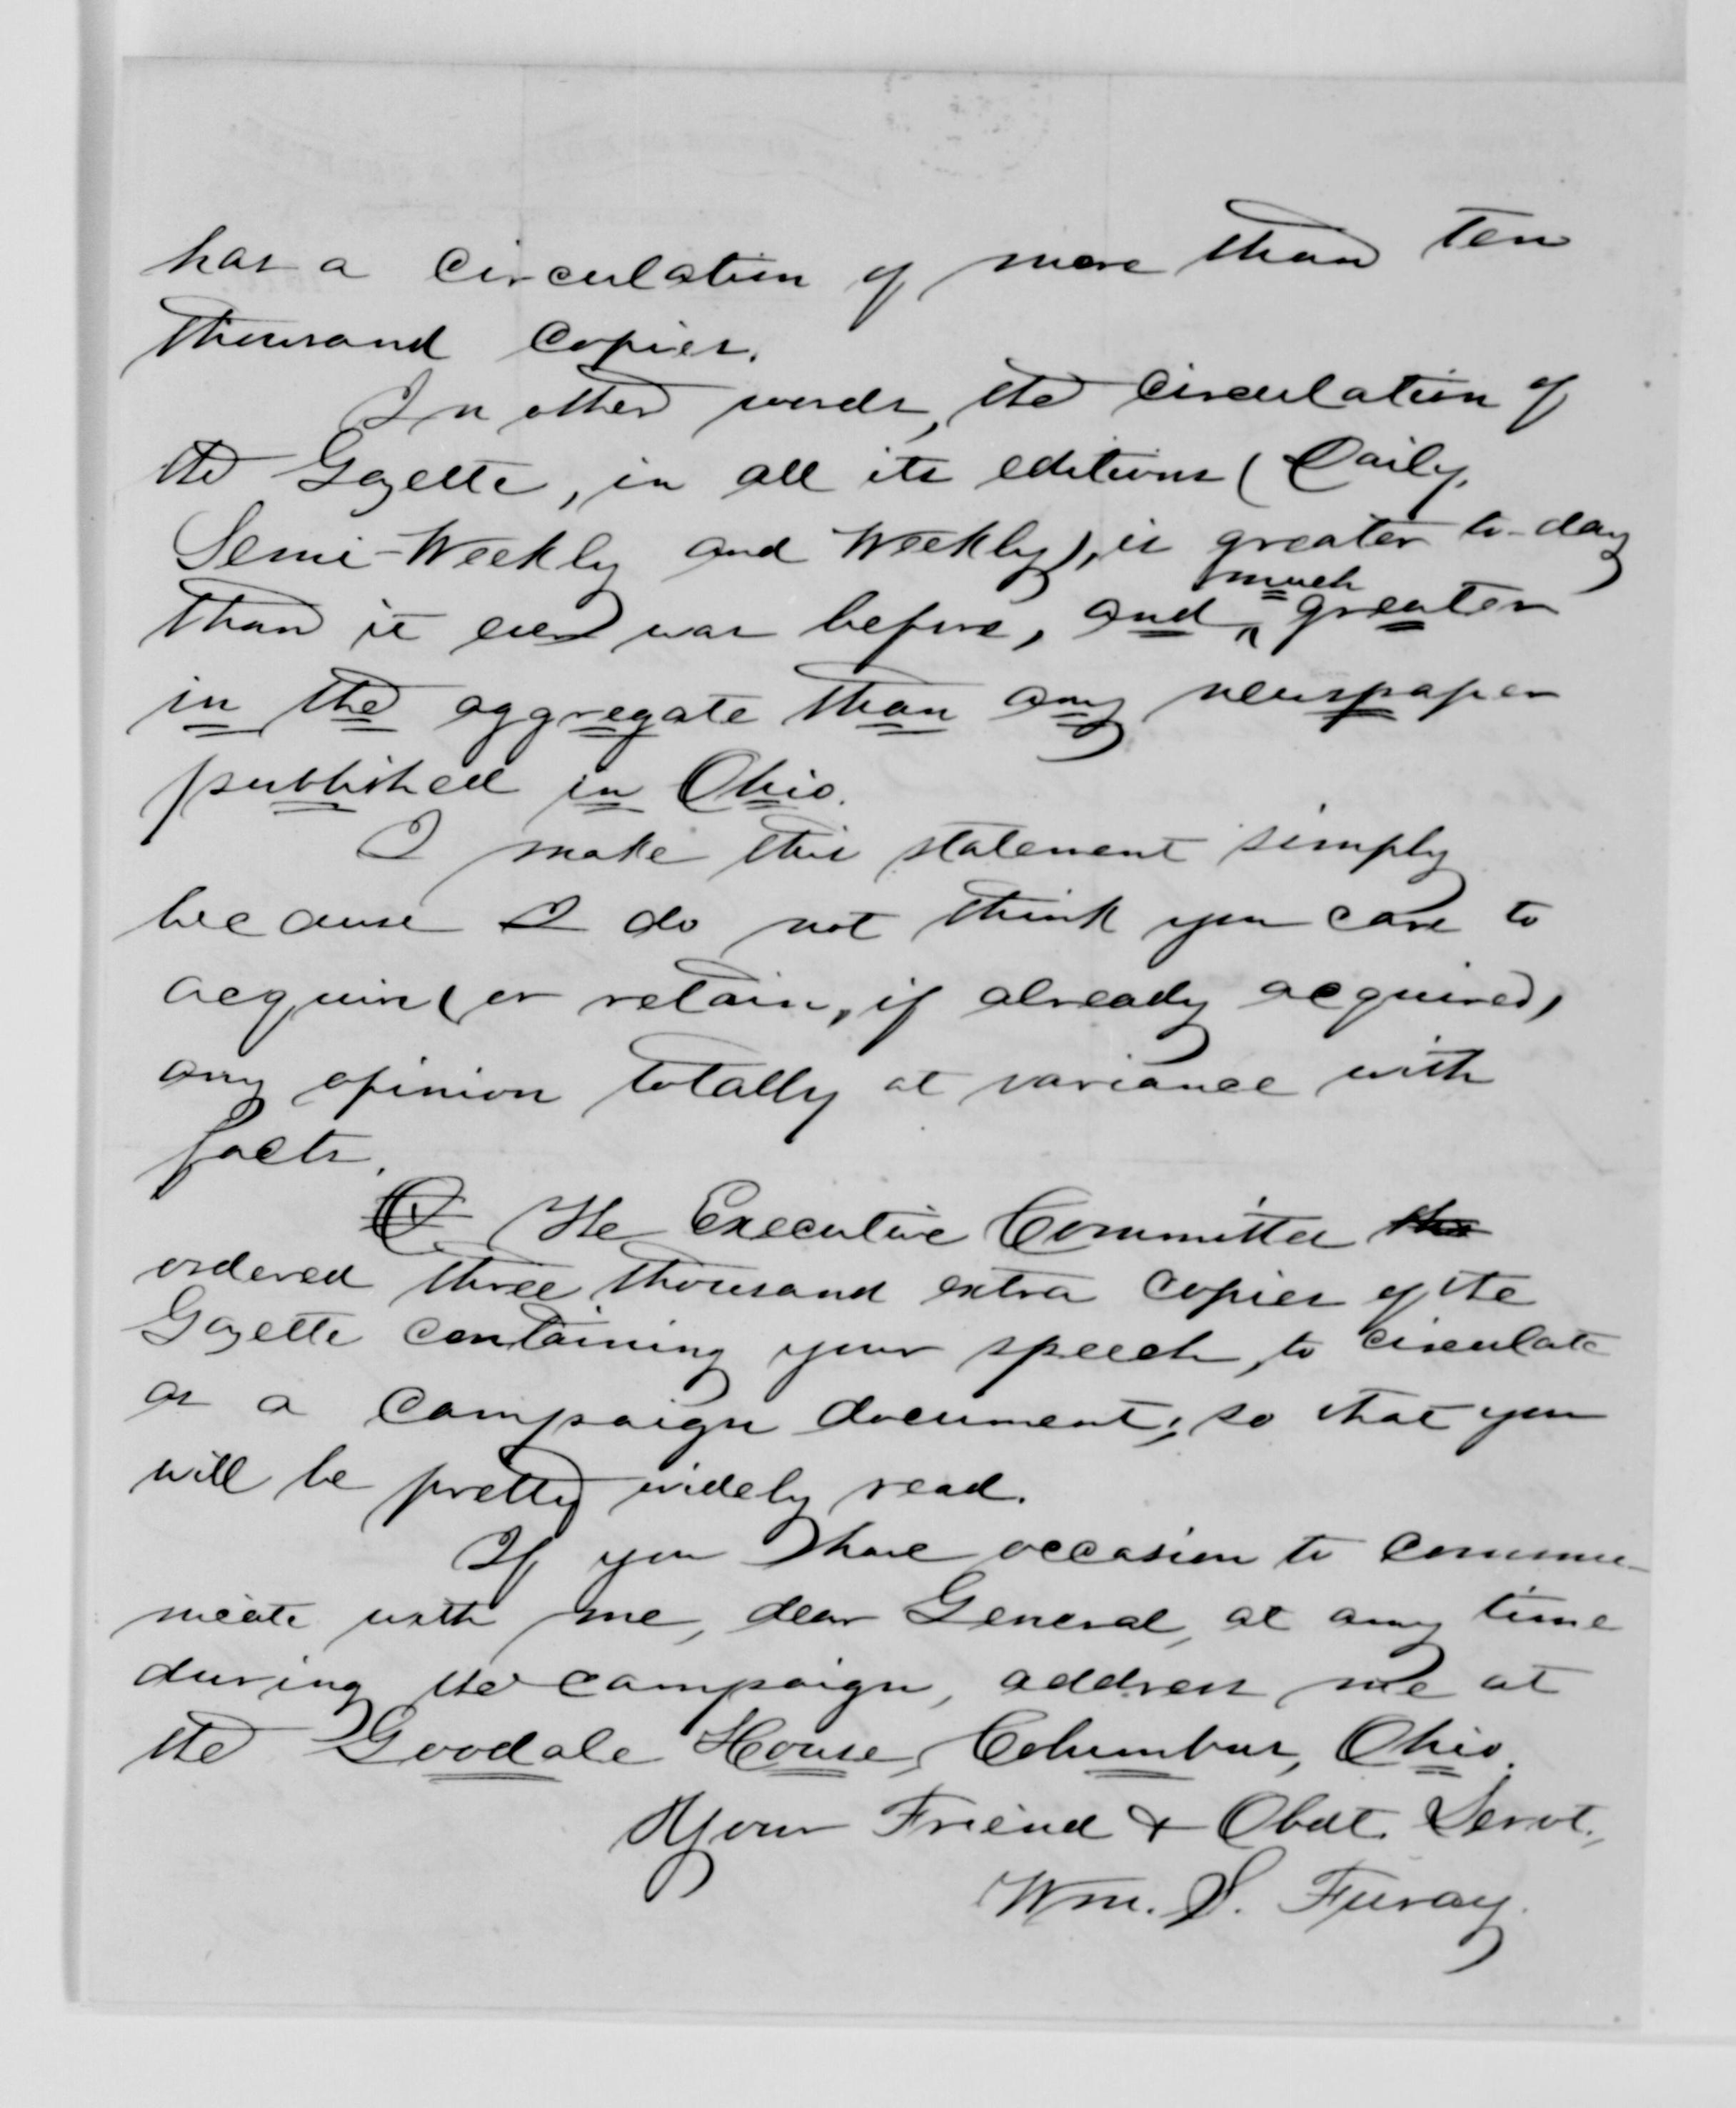 has a circulation of more than ten
thousand copies.
In other words, the circulation of
the Gazette, in all its editions (Daily,
Semi-Weekly and Weekly), is greater to-day
than it ever was before, and much greater
in the aggregate than any newspaper
published in Ohio.
I make this statement simply
because I do not think you care to
acquire (or retain, if already acquired,
any opinion totally at variance with
facts.
The Executive Committee the
ordered three thousand extra copies of the
Gazette containing your speech, to circulate
as a campaign document; so that you
will be pretty widely read.
If you have occasion to commu-
nicate with me, dear General, at any time
during the campaign, address me at
the Goodale House, Columbus, Ohio.
Your Friend & Obdt. Servt.,
Wm. S. Furay.